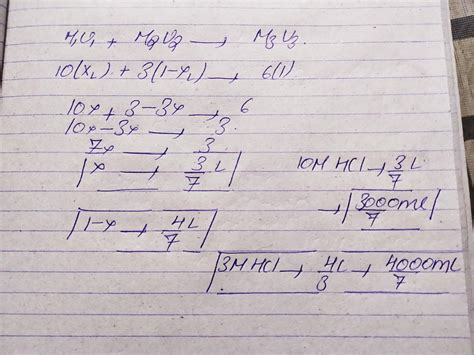 M1V1 + M2V2 → M3V3.
10(xL) + 3(1-xL) → 6(1)
10x + 3-3x → 6
10x-3x → 3.
7x → 3
x → 3/7 L
10M HCl → 3/7 L
→ 3000/7 mL
1-x → 4L/7
3M HCl → 4L/3 → 4000mL/7